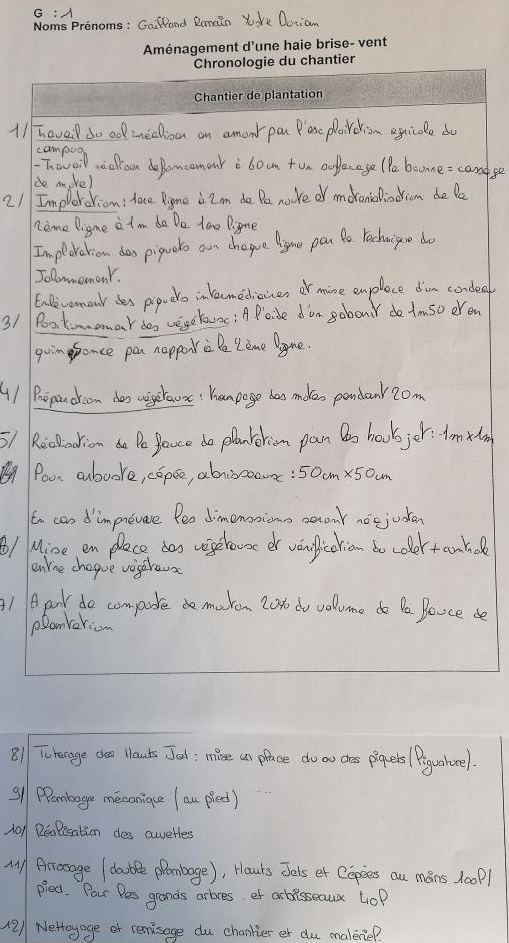 G : 1
Noms Prénoms : Gailland Romain Dorian
Aménagement d'une haie brise- vent
Chronologie du chantier
Chantier de plantation
1/ Travail du sol : réaliser en amont par l'exploitation agricole du
campus
- Travail réaliser défoncement à 60cm + un surfaçage (la bonne = cassage
de mote)
2/ Implétation : 1ère ligne à 2m de la route et matérialisation de la
2ème ligne à 1m de la 1ère ligne
Implétation des piquets sur chaque ligne par la technique du
Jalonnement.
Enlèvement des piquets intermédiaires et mise en place d'un cordeau
3/ Positionnement des végétaux : A l'aide d'un gabarit de 1m50 et en
quinconce par rapport à la 2ème ligne.
4/ Préparation des végétaux : trempage des motes pendant 20m
5/ Réalisation de la fausse de plantation pour les hauts jet : 1m x 1m
Pour arbuste, cépée, abrisseaux : 50cm x 50cm
En cas d'imprévue les dimenssions seront réajuster
6/ Mise en place des végétaux et vérification du colet + contrôle
entre chaque végétaux
7/ Aport de composte de mouton 20% du volume de la fausse de
plantation
8/ Tuterage des Hauts Jet : mise en place du ou des piquets (ligature).
9/ Plombage mécanique (au pied)
10/ Réalisation des cuvettes
11/ Arrosage (double plombage), Hauts Jets et Cépées au moins 100l/
pied. Pour les grands arbres et arbisseaux 40l
12/ Nettoyage et remisage du chantier et du matériel.